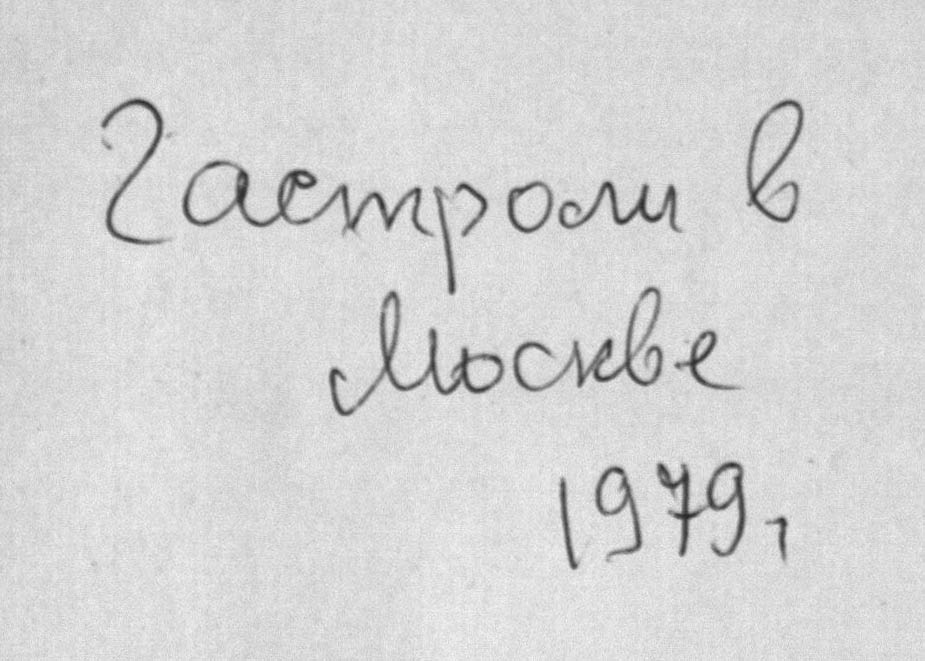 Гастроли в
Москве
1979г